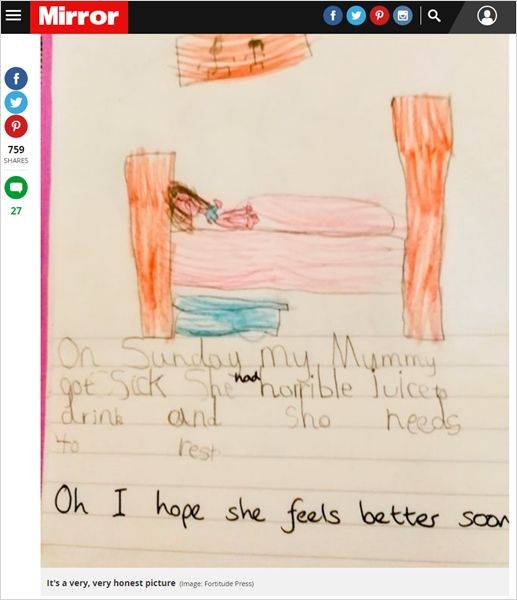 Mirror
759
SHARES
27
On Sunday my Mummy
got Sick She had horrible Juice to
drink and sho needs
to rest
Oh I hope she feels better soon
It's a very, very honest picture (Image: Fortitude Press)